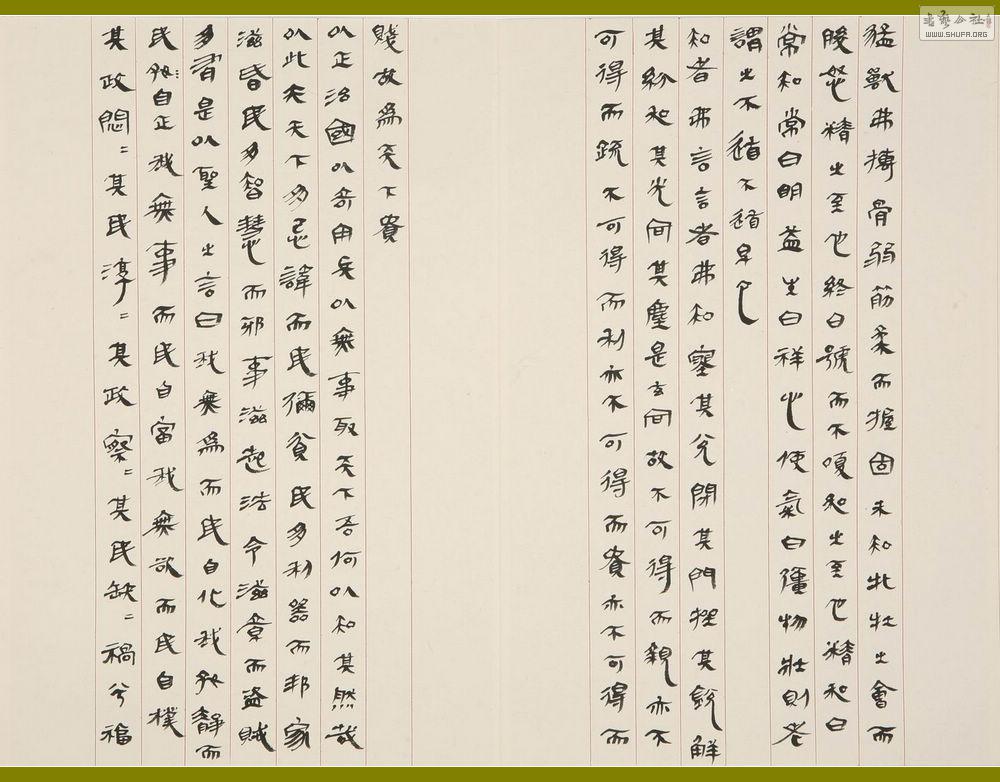 猛獸弗搏骨弱筋柔而握固未知牝牡之會而
朘怒精之至也終日號而不嗄和之至也精和曰
常知常曰明益生曰祥心使氣曰彊物壯則老
謂之不道不道早已
知者弗言言者弗知塞其兌閉其門挫其銳解
其紛和其光同其塵是玄同故不可得而親亦不
可得而疏不可得而利亦不可得而貴亦不可得而
賤故為天下貴
以正治國以奇用兵以無事取天下吾何以知其然哉
以此夫天下多忌諱而民彌貧民多利器而邦家
滋昏民多智慧而邪事滋起法令滋章而盜賊
多有是以聖人之言曰我無為而民自化我好靜而
民自正我無事而民自富我無欲而民自樸
其政悶=其民淳=其政察=其民缺=禍兮福
書藝公社
WWW.SHUFA.ORG